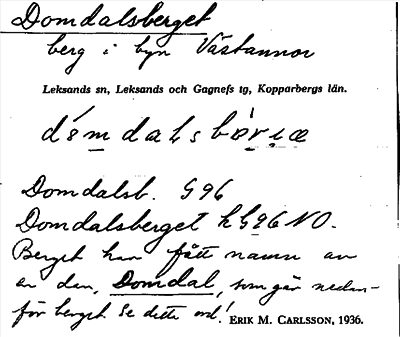 Domdalsberget
berg i byn Västannor
Leksands sn, Leksands och Gagnefs tg, Kopparbergs län.
Domdalsb. G96
Domdalsberget k G96 NO.
Berget har fått namn av
en dan, Domdal, som går nedan-
för berget. Se detta ord!
ERIK M. CARLSSON, 1936.